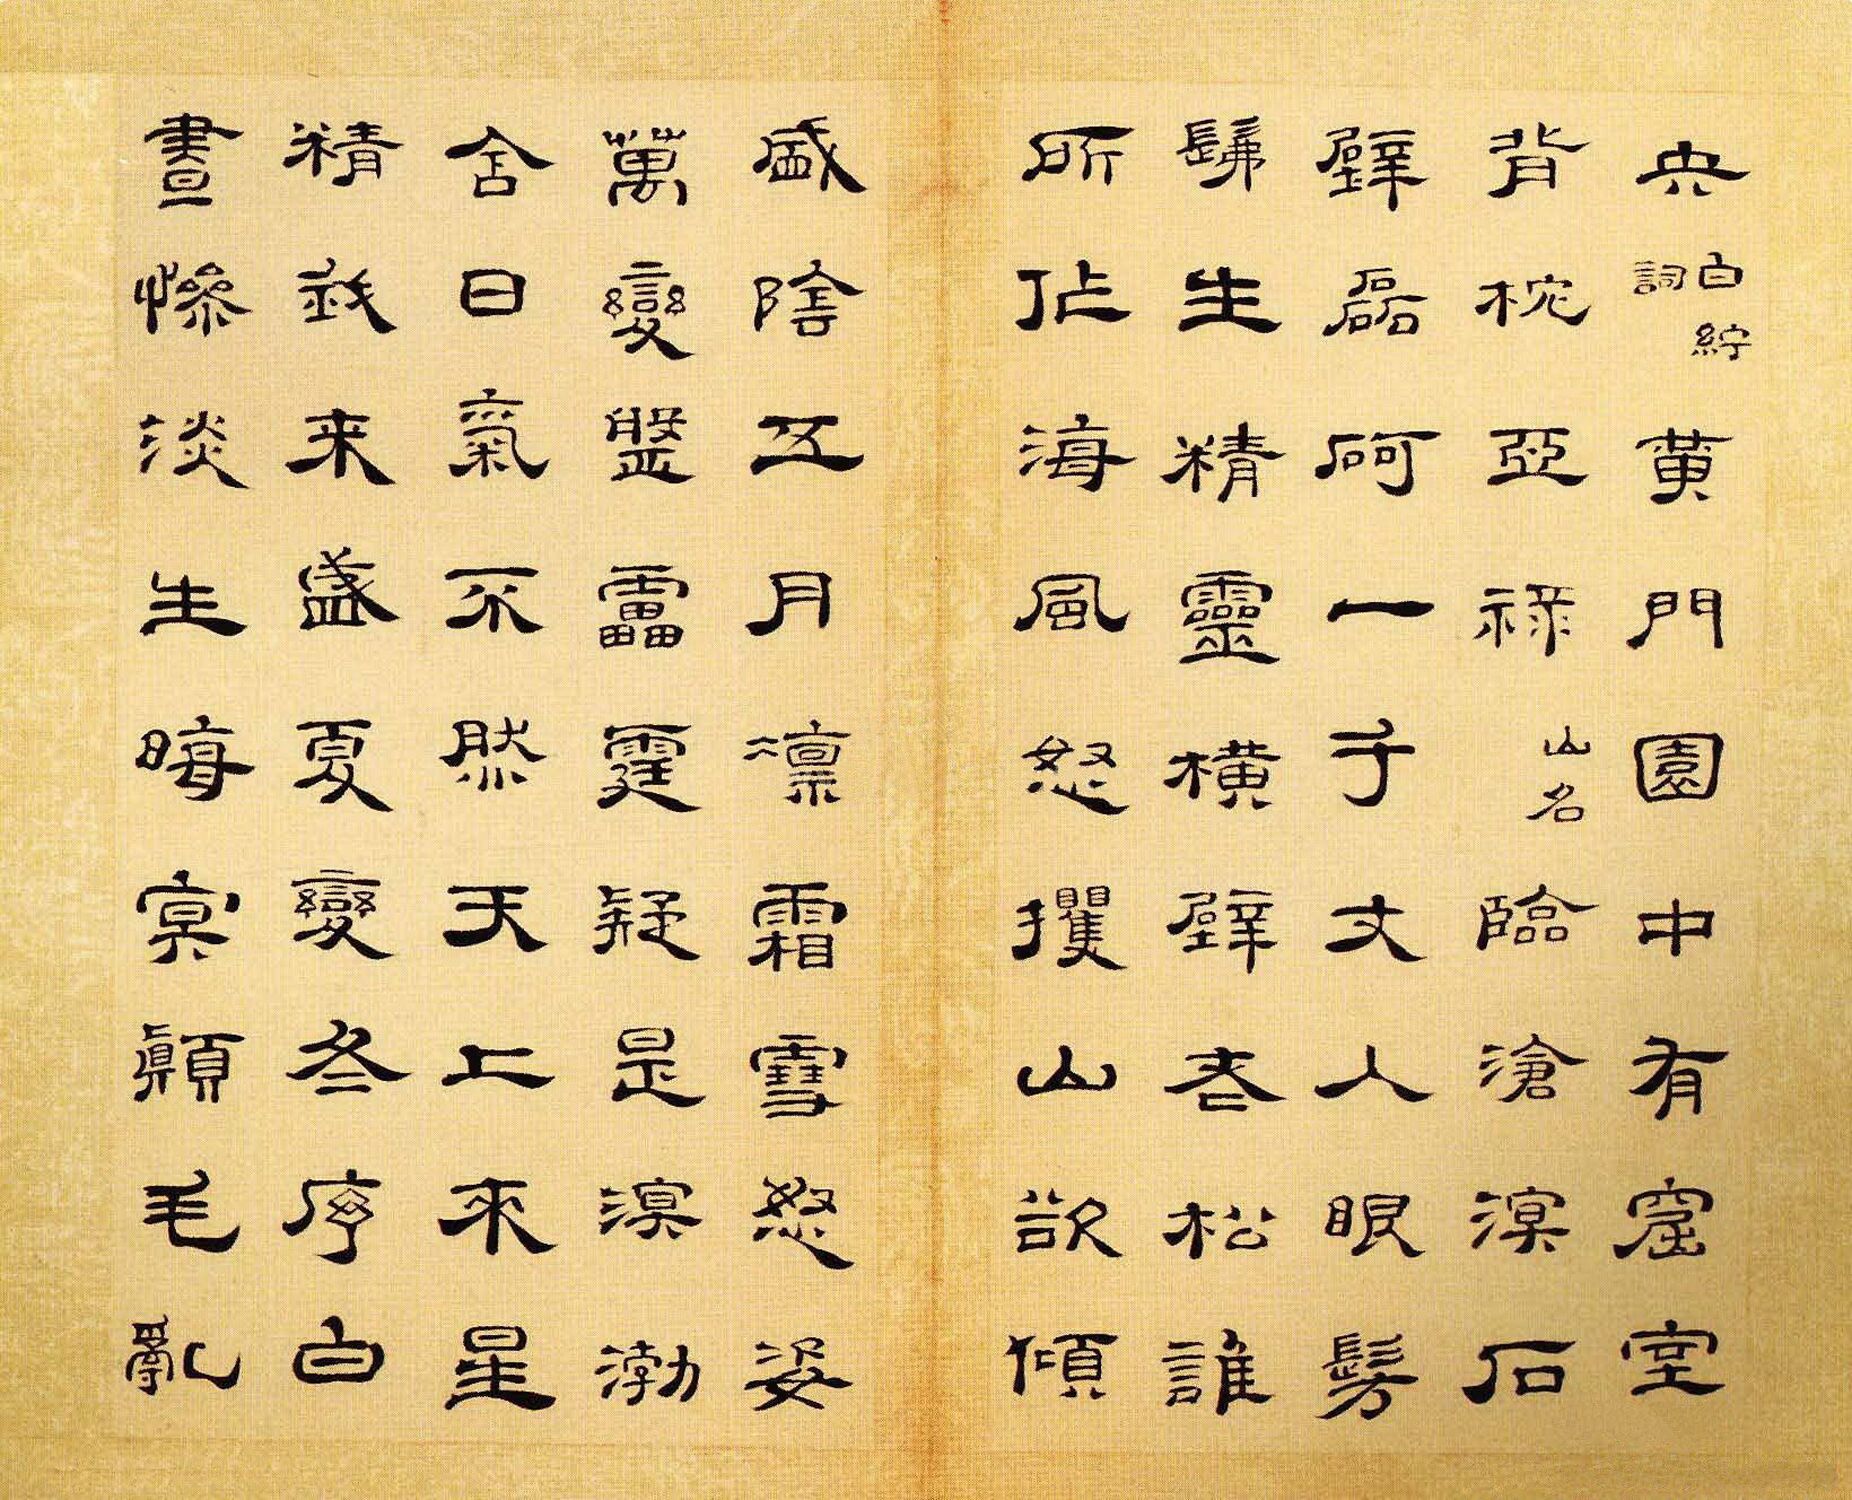 央白紵詞黄門園中有窟室
背枕亞祿山名臨滄溟石
壁磊砢一千丈人眼髣
髴生精靈橫壁老松誰
所作海風怒攫山欲傾
盛陰五月凛霜雪怒姿
萬變盤靁霆疑是溟渤
含日氣不然天上來星
精我来盛夏變冬序白
晝慘淡生晦冥顛毛亂